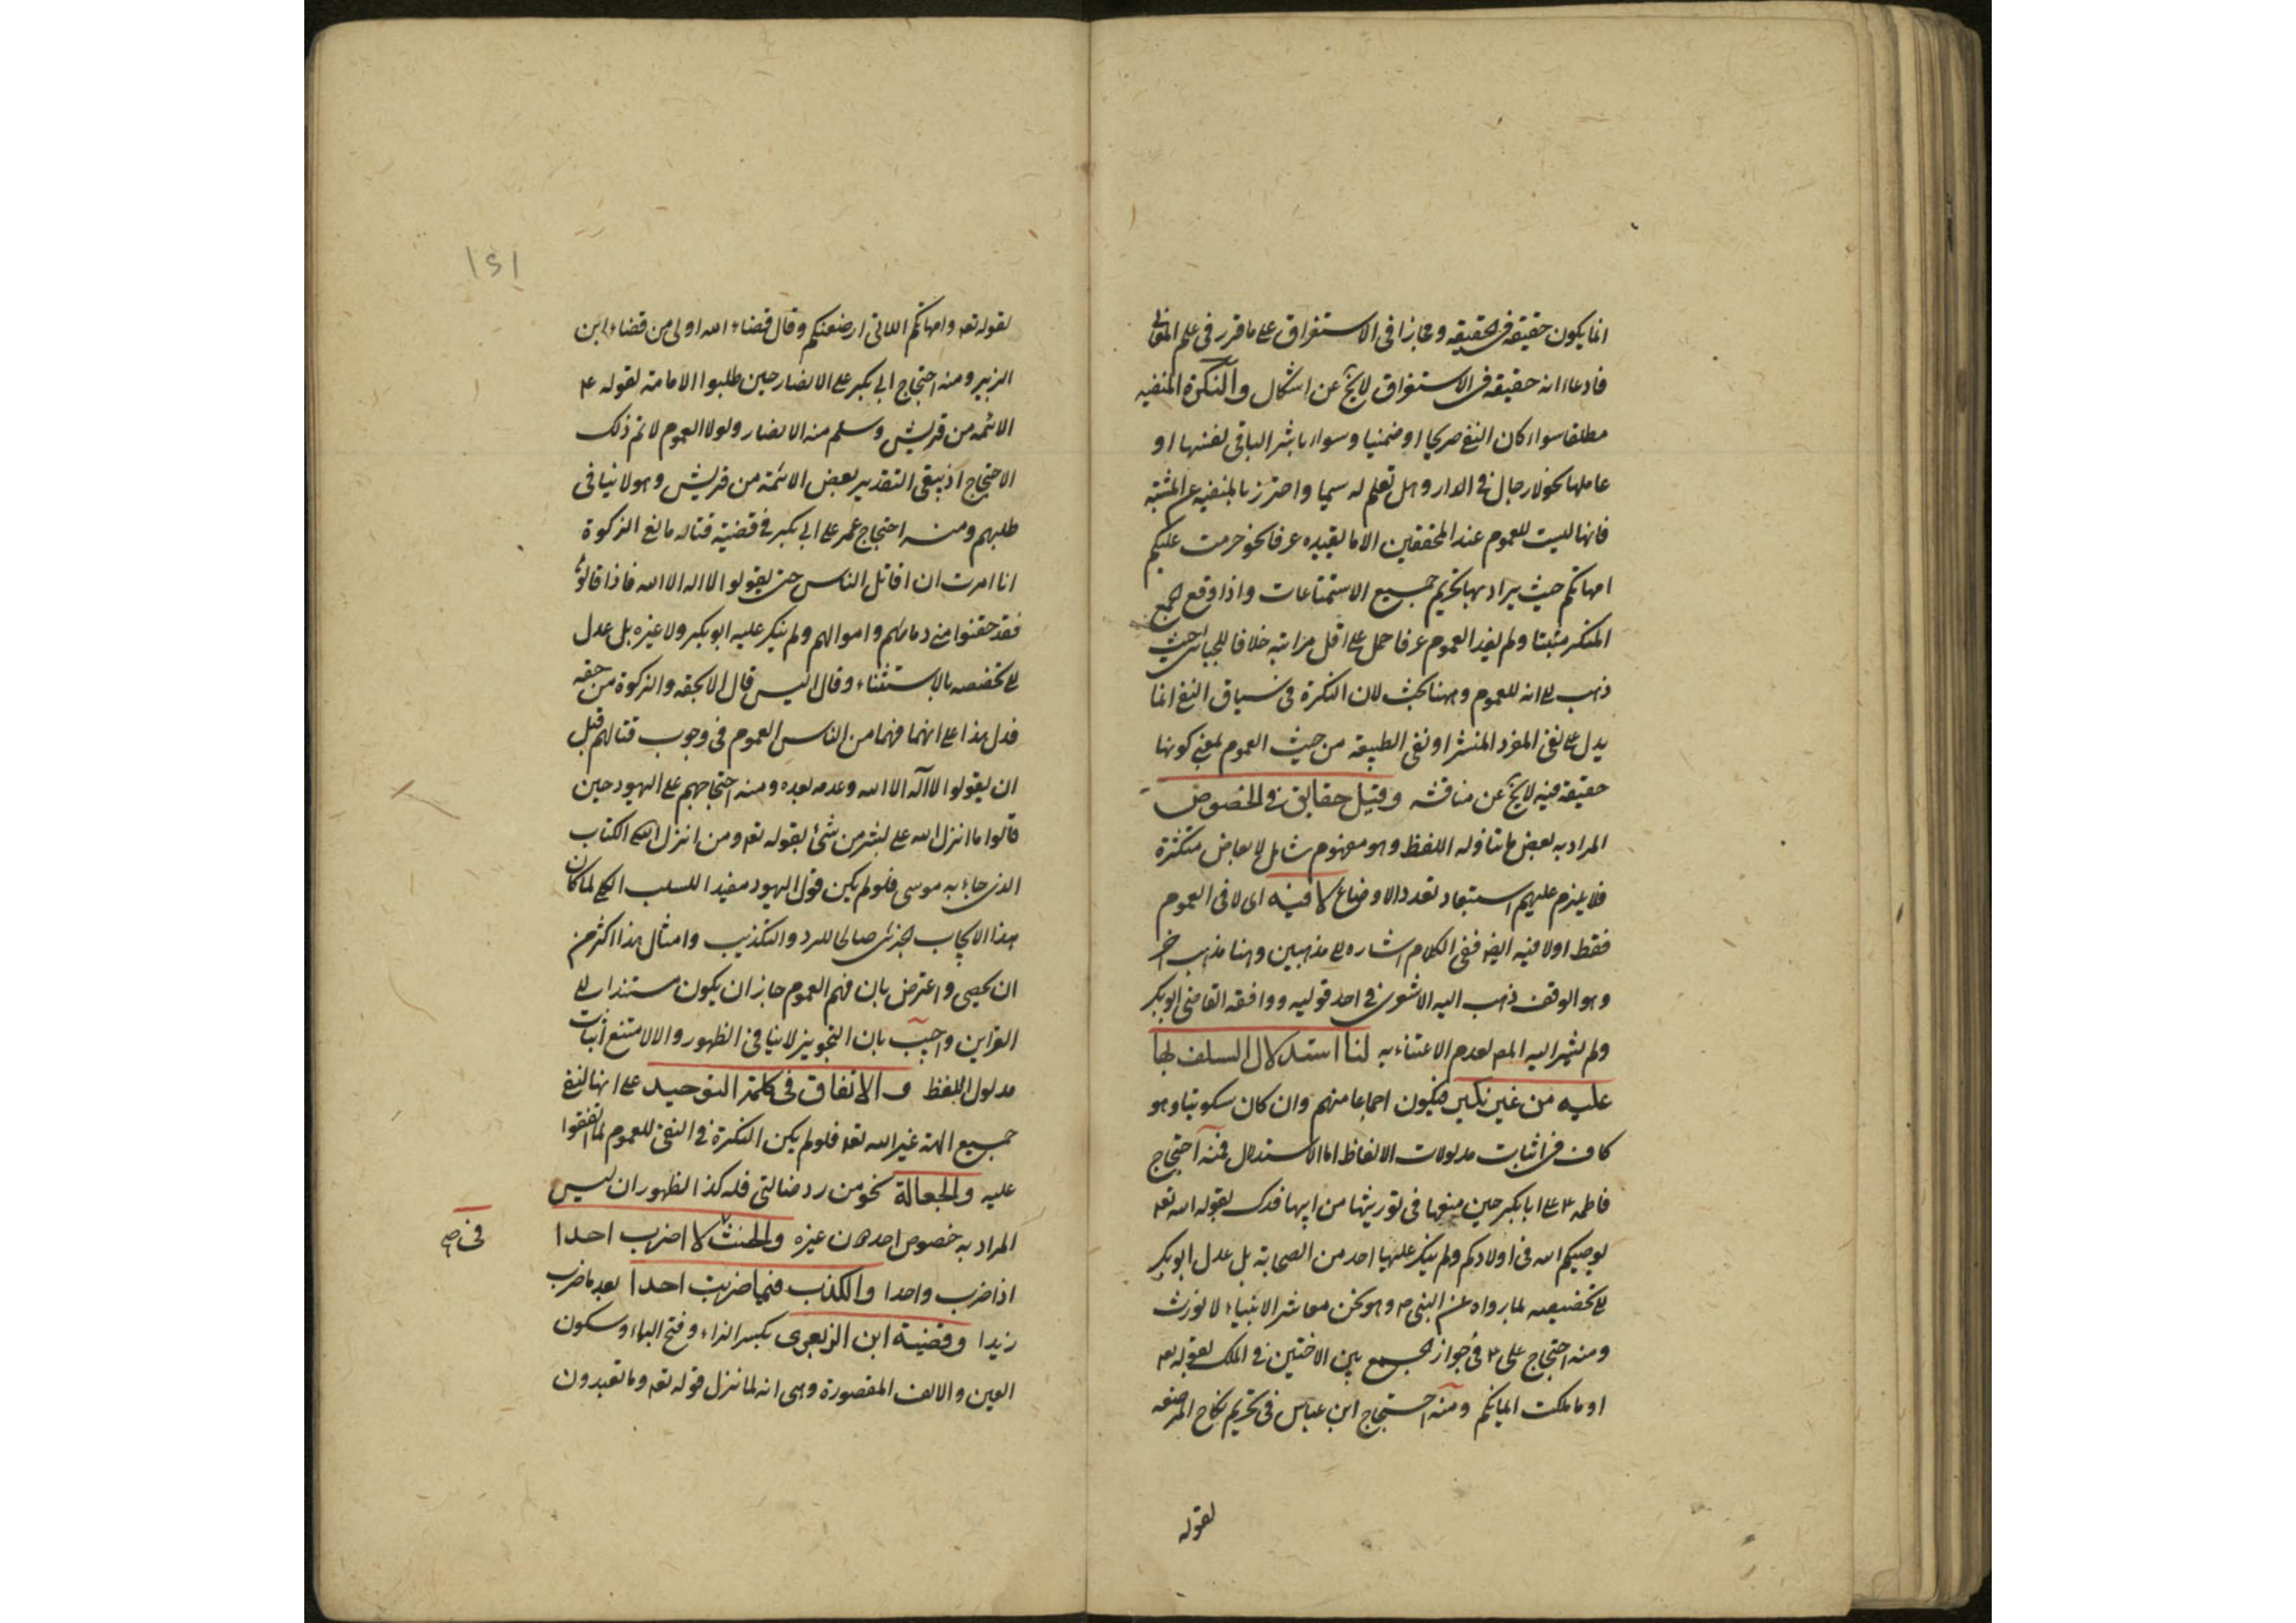 انما يكون حقيقة فى الحقيقه ومجازا فى الاستغراق على ما قرر فى علم
فادعاء انه حقيقه فى الاستغراق لا يخ عن اشكال والنكرة المنفيه
مطلقا سواء كان النفى صريحا او ضمنيا وسواء باشر النافى لفظها او
عاملها نحو لا رجال فى الدار وهل تعلم له سميا واحترز بالمنفيه عن المثبته
فانها ليست للعموم عند المحققين الا ما يفيده عرفا نحو حرمت عليكم
امهاتكم حيث يراد بها تحريم جميع الاستمتاعات واذا وقع الجمع
المنكر مثبتا ولم يفد العموم عرفا حمل على اقل مراتبه خلافا للجبائى حيث
ذهب الى انه للعموم وههنا بحث لان النكرة فى سياق النفى انما
يدل على نفى المفرد المنتشر او نفى الطبيعة من حيث العموم بمعنى كونها
حقيقة فيه لا يخ عن مناقشه وقيل حقايق فى الخصوص
المراد به بعض ما يتناوله اللفظ وهو مفهوم شامل لابعاض متكثرة
فلا يلزم عليهم استبعاد تعدد الاوضاع لا فيه اى لا فى العموم
فقط او لا فيه ايضا ففى الكلام اشاره الى مذهبين وهنا مذهب اخر
وهو الوقف ذهب اليه الاشعرى فى احد قوليه ووافقه القاضى ابو بكر
ولم يشر اليه المص لعدم الاعتناء به لنا استدلال السلف بها
عليه من غير نكير فيكون اجماعا منهم وان كان سكوتيا وهو
كاف فى اثبات مدلولات الالفاظ اما الاستدلال فمنه احتجاج
فاطمه ع على ابا بكر حين منعها فى توريثها من ابيها فدك بقوله الله تع
يوصيكم الله فى اولادكم ولم ينكر عليها احد من الصحابة بل عدل ابو بكر
الى تخصيصه بما رواه عن النبى ص وهو نحن معاشر الانبياء لا نورث
ومنه احتجاج على ع فى جواز الجمع بين الاختين فى الملك بقوله تع
او ما ملكت ايمانكم ومنه احتجاج ابن عباس فى تحريم نكاح المرضعه
لقوله
١٥١
لقوله تع وامهاتكم اللاتى ارضعنكم وقال قضاء الله اولى من قضاء ابن
الزبير ومنه احتجاج ابى بكر على الانصار حين طلبوا الامامة لقوله ع
الائمه من قريش وسلم منه الانصار ولولا العموم لا تم ذلك
الاحتجاج اذ يبقى التقدير بعض الائمة من قريش وهو لا ينافى
طلبهم ومنه احتجاج عمر على ابى بكر فى قضية قتاله مانعى الزكوة
انا امرت ان اقاتل الناس حتى يقولوا لا اله الا الله فاذا قالوها
فقد حقنوا منى دمائهم واموالهم ولم ينكر عليه ابو بكر ولا غيره بل عدل
الى تخصصه بالاستثناء وقال اليس قال الا بحقه والزكوة من حقه
فدل هذا على انهما فهما من الناس العموم فى وجوب قتالهم قبل
ان يقولوا لا اله الا الله وعدمه بعده ومنه احتجاجهم على اليهود حين
قالوا ما انزل الله على بشر من شئ بقوله تع ومن انزل الله الكتاب
الذى جاء به موسى فلو لم يكن قول اليهود مفيدا للسلب الكلى لما كان
هذا الايجاب الجزئى صالحا للرد والتكذيب وامثال هذا اكثر من
ان يحصى واعترض بان فهم العموم جاز ان يكون مستندا الى
القراين واجيب بان التجويز لا ينافى الظهور والا لامتنع اثبات
مدلول اللفظ والاتفاق فى كلمة التوحيد على انها لنفى
جميع الهة غير الله تع فلو لم يكن النكرة فى النفى للعموم لما اتفقوا
عليه والجعالة نحو من رد ضالتى فله كذا لظهور ان ليس
المراد به خصوص احد دون غيره والحنث لا اضرب احدا
فى
اذا ضرب واحدا والكذب فيما ضربت احدا بعد ما ضرب
زيدا وقضية ابن الزبعرى بكسر الزاء وفتح الباء وسكون
العين والالف المقصورة وهى انه لما نزل قوله تع وما تعبدون